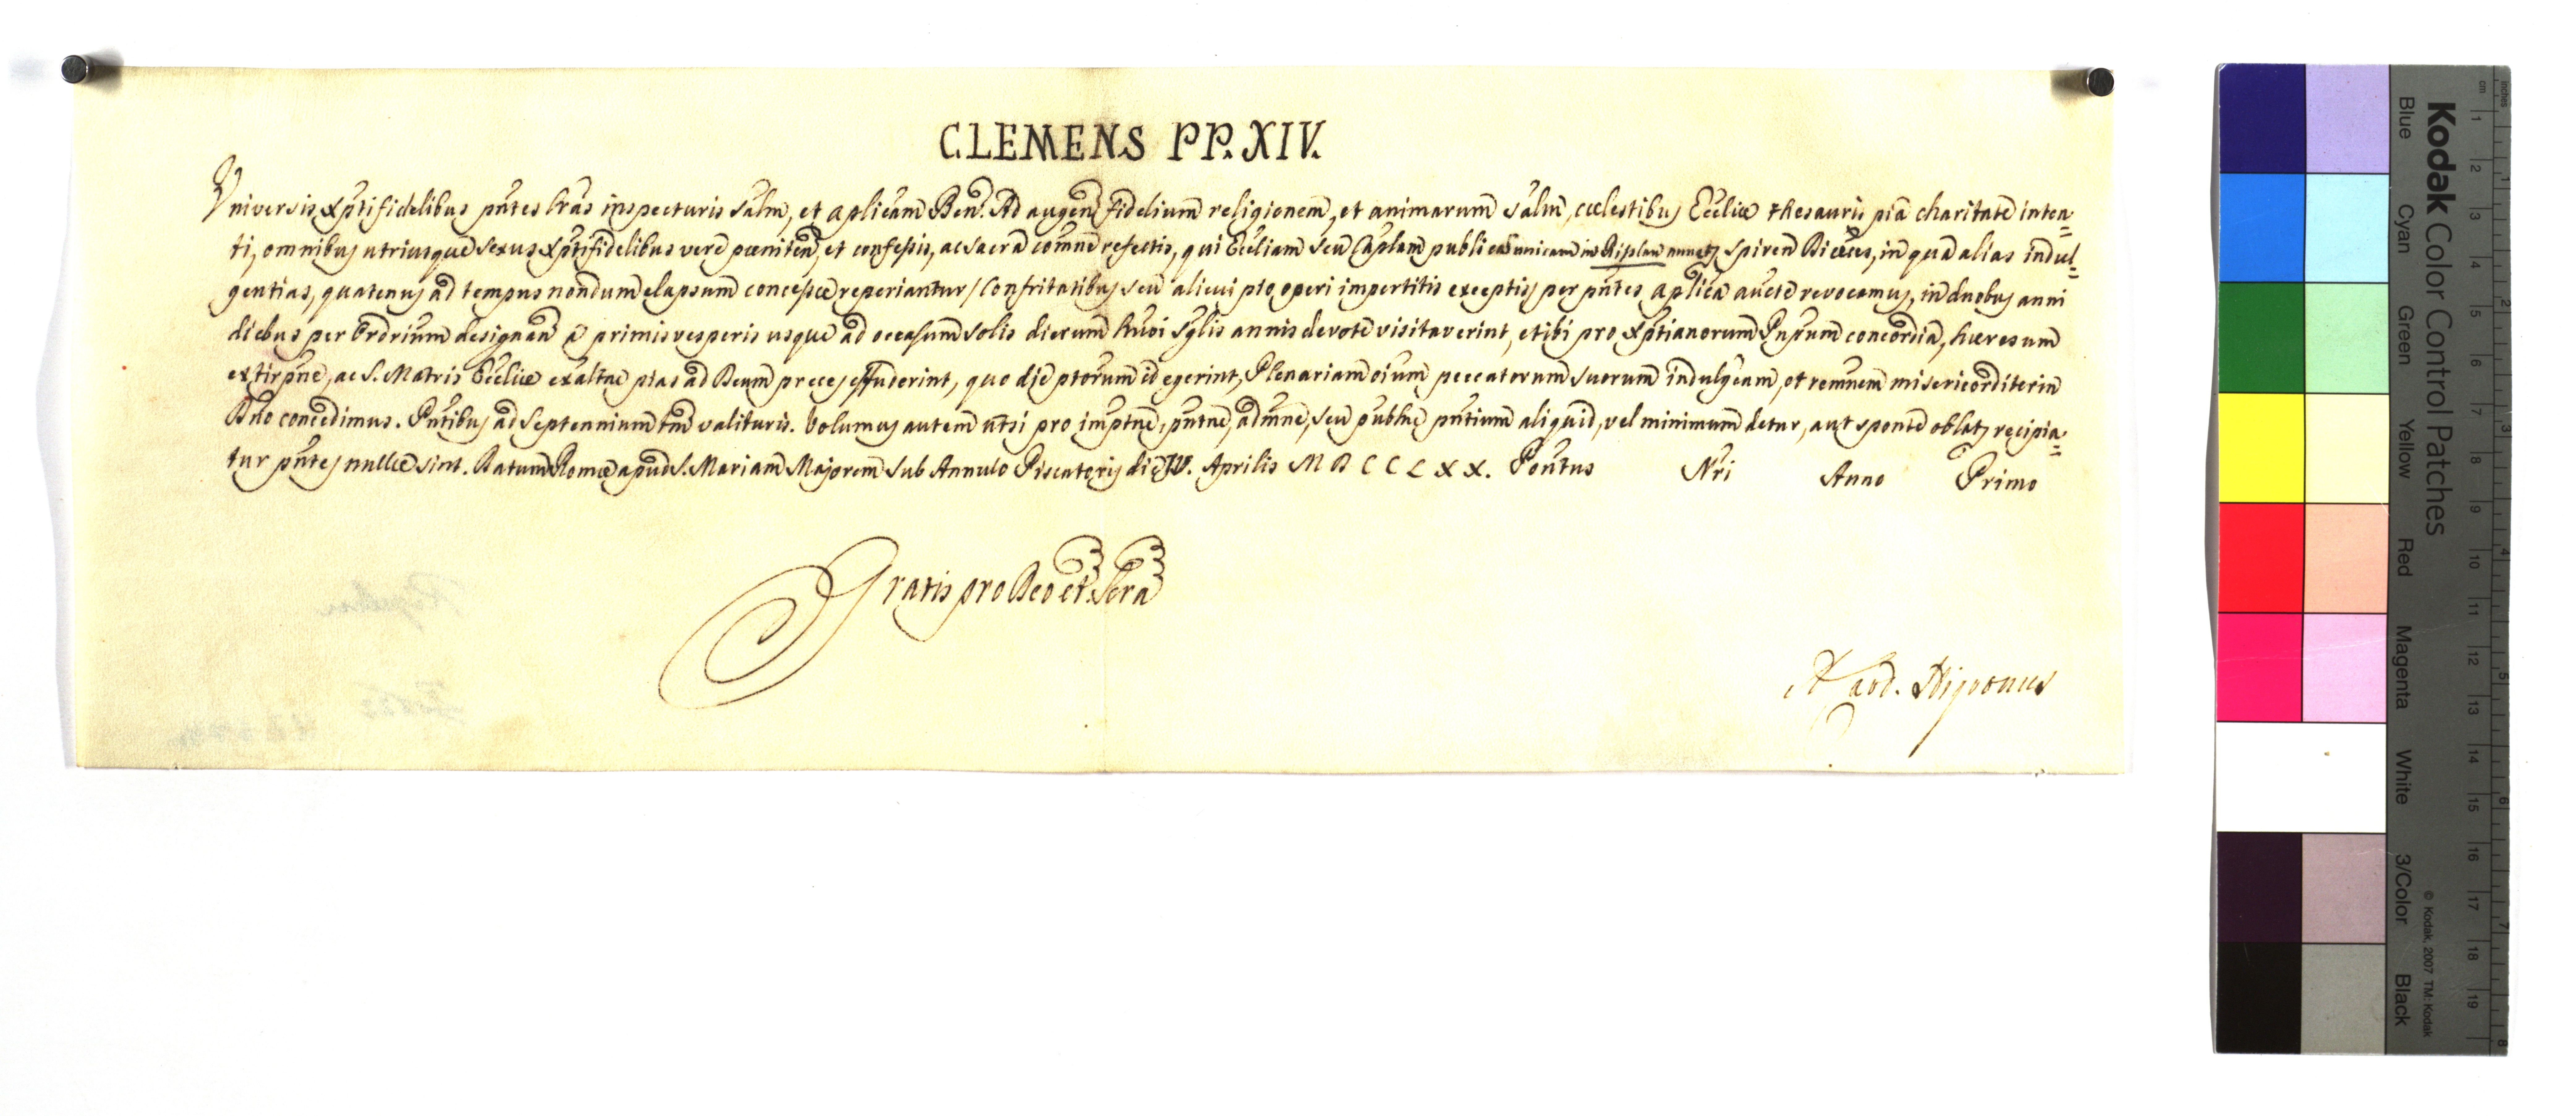 CLEMENS PP. XIV.
Universis Xptifidelibus pntes lras inspecturis Salm, et aplicam Ben. Ad augen fidelium religionem, et animarum salm, cœlestibus Ecclie thesauris pia charitate inten=
ti, omnibus utriusque sexus Xptifidelibus vere pœniten, et confessis, ac sacra comne refectis, qui Eccliam seu Caplam publicam unicam in Spiren Diœces, in qua alias indul=
gentias, quatenus ad tempus nondum elapsum concessæ reperiantur / Confritatibus seu alicui pio operi impertitis exceptis / per pntes aplica aucte revocamus, in duobus anni
diebus per Ordrium designan a primis vesperis usque ad occasum solis dierum huoi sglis annis devote visitaverint, et ibi pro Xptianorum Pnpum concordia, hæresum
extirpne, ac S. Matris Ecclie exaltne pias ad Deum preces effuderint, quo die ptorum id egerint, Plenariam oium peccatorum suorum indulgeam, et remnem misericorditer in
Dno concedimus. Pntibus ad Septennium tm valituris. Volumus autem ut si pro imptne, pntne, admne, seu publne pntium aliquid, vel minimum detur, aut sponte oblat, recipia=
tur pntes nullæ sint. Datum Romæ apud S. Mariam Majorem sub Annulo Piscatoris die IV. Aprilis M D C C L X X. Pontus Nri Anno Primo
Gratis pro Deo et Scra
A. Card. Nigronus
Kodak Color Control Patches
Blue Cyan Green Yellow Red Magenta White 3/Color Black
© Kodak, 2007 TM: Kodak
cm 1 2 3 4 5 6 7 8 9 10 11 12 13 14 15 16 17 18 19
Inches 1 2 3 4 5 6 7 8